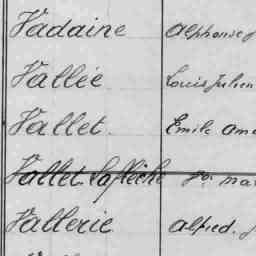 Vadaine Alphonse
Vallée Louis Julien
Vallet Emile Ama
Vallet Laflèche
Vallerie Alfred.